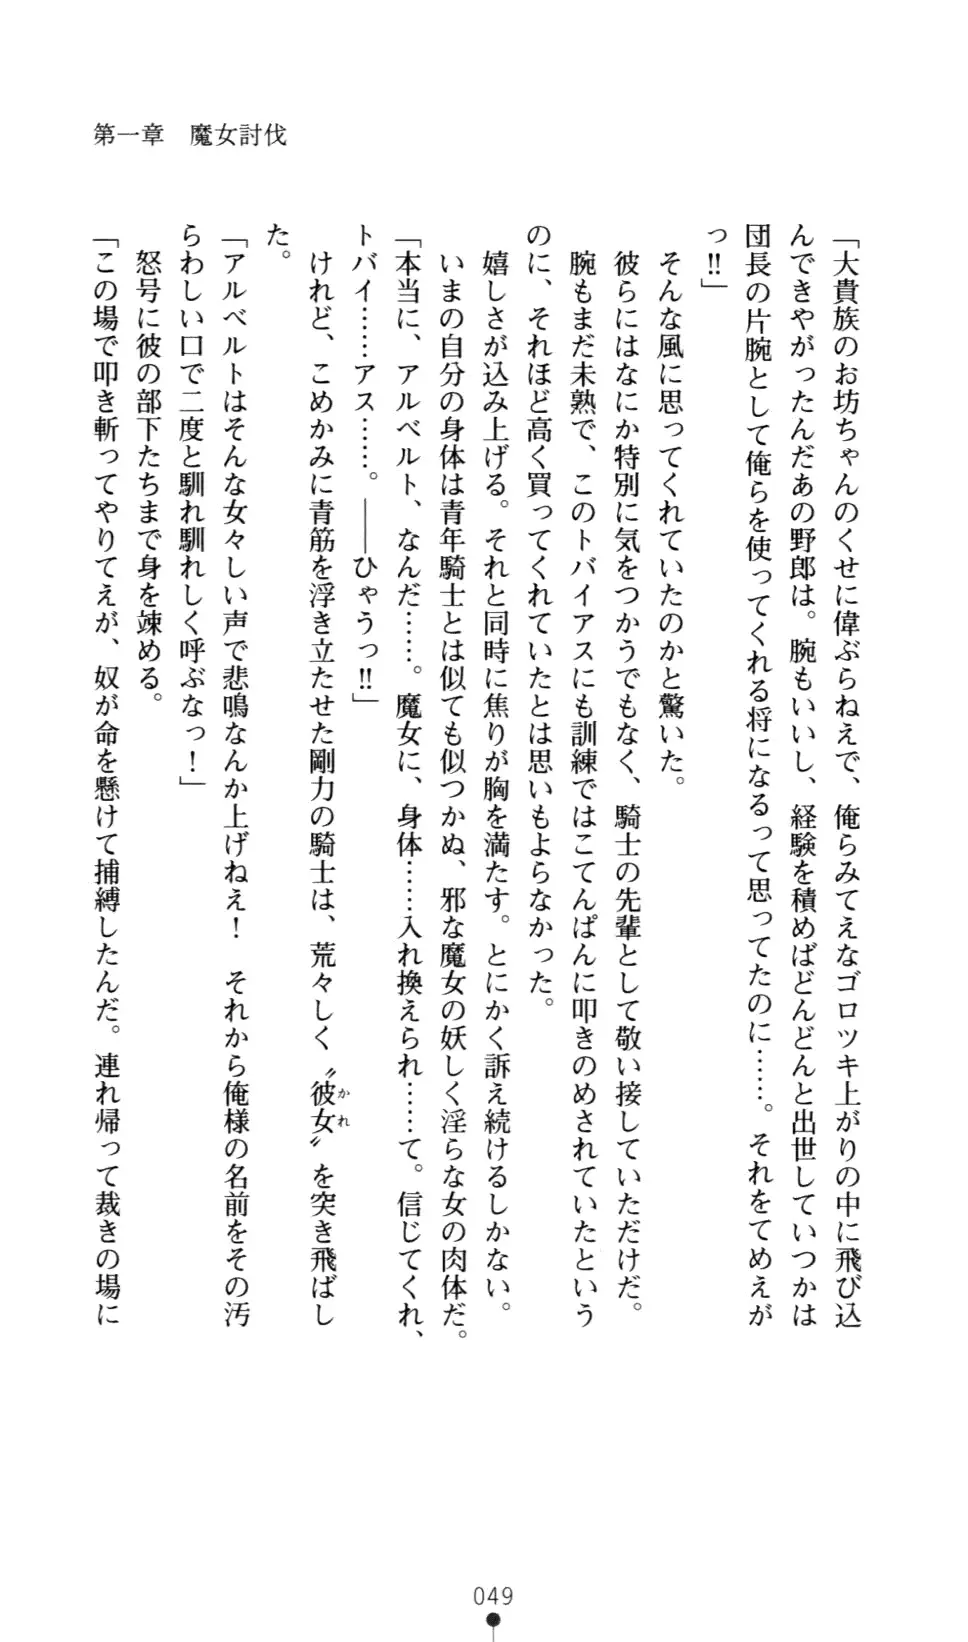 第一章　魔女討伐
「大貴族のお坊ちゃんのくせに偉ぶらねえで、俺らみてえなゴロツキ上がりの中に飛び込
んできやがったんだあの野郎は。腕もいいし、経験を積めばどんどんと出世していつかは
団長の片腕として俺らを使ってくれる将になるって思ってたのに……。それをてめえが
っ‼」
そんな風に思ってくれていたのかと驚いた。
彼らにはなにか特別に気をつかうでもなく、騎士の先輩として敬い接していただけだ。
腕もまだ未熟で、このトバイアスにも訓練ではこてんぱんに叩きのめされていたという
のに、それほど高く買ってくれていたとは思いもよらなかった。
嬉しさが込み上げる。それと同時に焦りが胸を満たす。とにかく訴え続けるしかない。
いまの自分の身体は青年騎士とは似ても似つかぬ、邪な魔女の妖しく淫らな女の肉体だ。
「本当に、アルベルト、なんだ……。魔女に、身体……入れ換えられ……て。信じてくれ、
トバイ……アス……。――ひゃうっ‼」
けれど、こめかみに青筋を浮き立たせた剛力の騎士は、荒々しく〝彼女〟を突き飛ばし
かれ
た。
「アルベルトはそんな女々しい声で悲鳴なんか上げねえ！　それから俺様の名前をその汚
らわしい口で二度と馴れ馴れしく呼ぶなっ！」
怒号に彼の部下たちまで身を竦める。
「この場で叩き斬ってやりてえが、奴が命を懸けて捕縛したんだ。連れ帰って裁きの場に
049